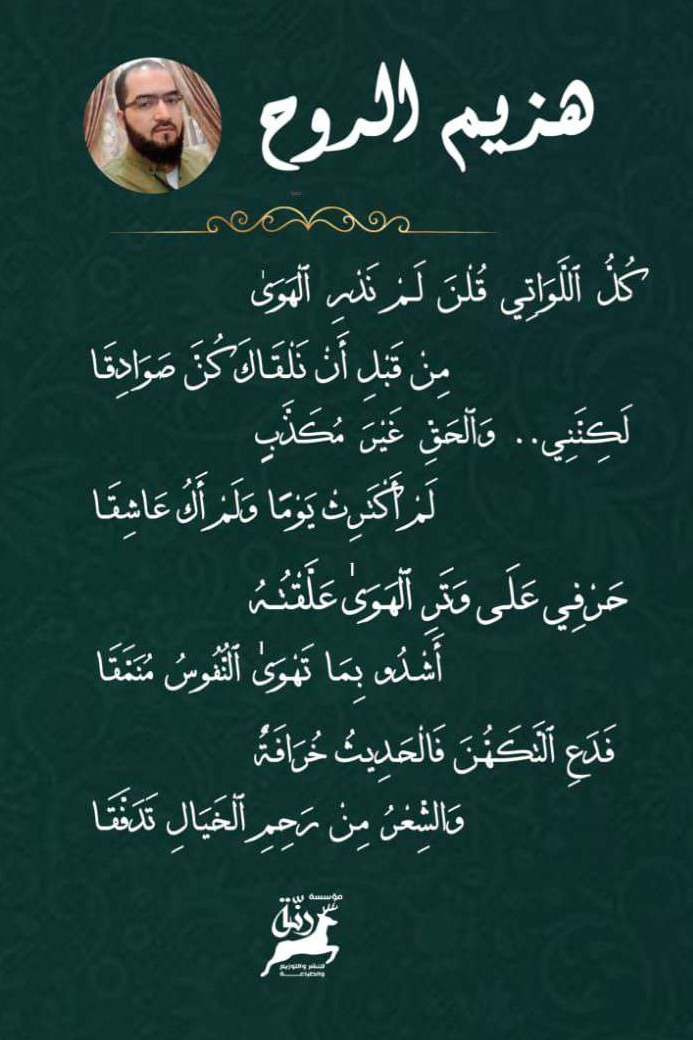 هزيم الروح
كُلُّ ٱللَّوَاتِي قُلْنَ لَمْ نَدْرِ ٱلْهَوَىٰ
مِنْ قَبْلِ أَنْ نَلْقَاكَ كُنَّ صَوَادِقَا
لَكِنَّنِي.. وَٱلْحَقِّ غَيْرَ مُكَذَّبٍ
لَمْ أَكْتَرِثْ يَوْمًا وَلَمْ أَكُ عَاشِقَا
حَرْفِي عَلَى وَتَرِ ٱلْهَوَىٰ عَلَّقْتُهُ
أَشْدُو بِمَا تَهْوَىٰ ٱلنُّفُوسُ مُنَمَّقَا
فَدَعِ ٱلتَّكَهُّنَ فَالْحَدِيثُ خُرَافَةٌ
وَالشِّعْرُ مِنْ رَحِمِ ٱلْخَيَالِ تَدَفَّقَا
مؤسسة
رنّة
للنشر والتوزيع
والطباعـــة